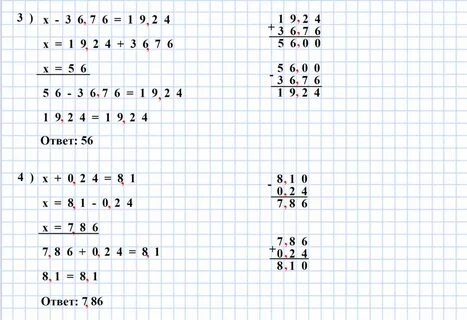 3) x - 36,76 = 19,24
x = 19,24 + 36,76
x = 56
56 - 36,76 = 19,24
19,24 = 19,24
Ответ: 56
19,24
+
36,76
56,00
56,00
-
36,76
19,24
4) x + 0,24 = 8,1
x = 8,1 - 0,24
x = 7,86
7,86 + 0,24 = 8,1
8,1 = 8,1
Ответ: 7,86
8,10
-
0,24
7,86
7,86
+
0,24
8,10